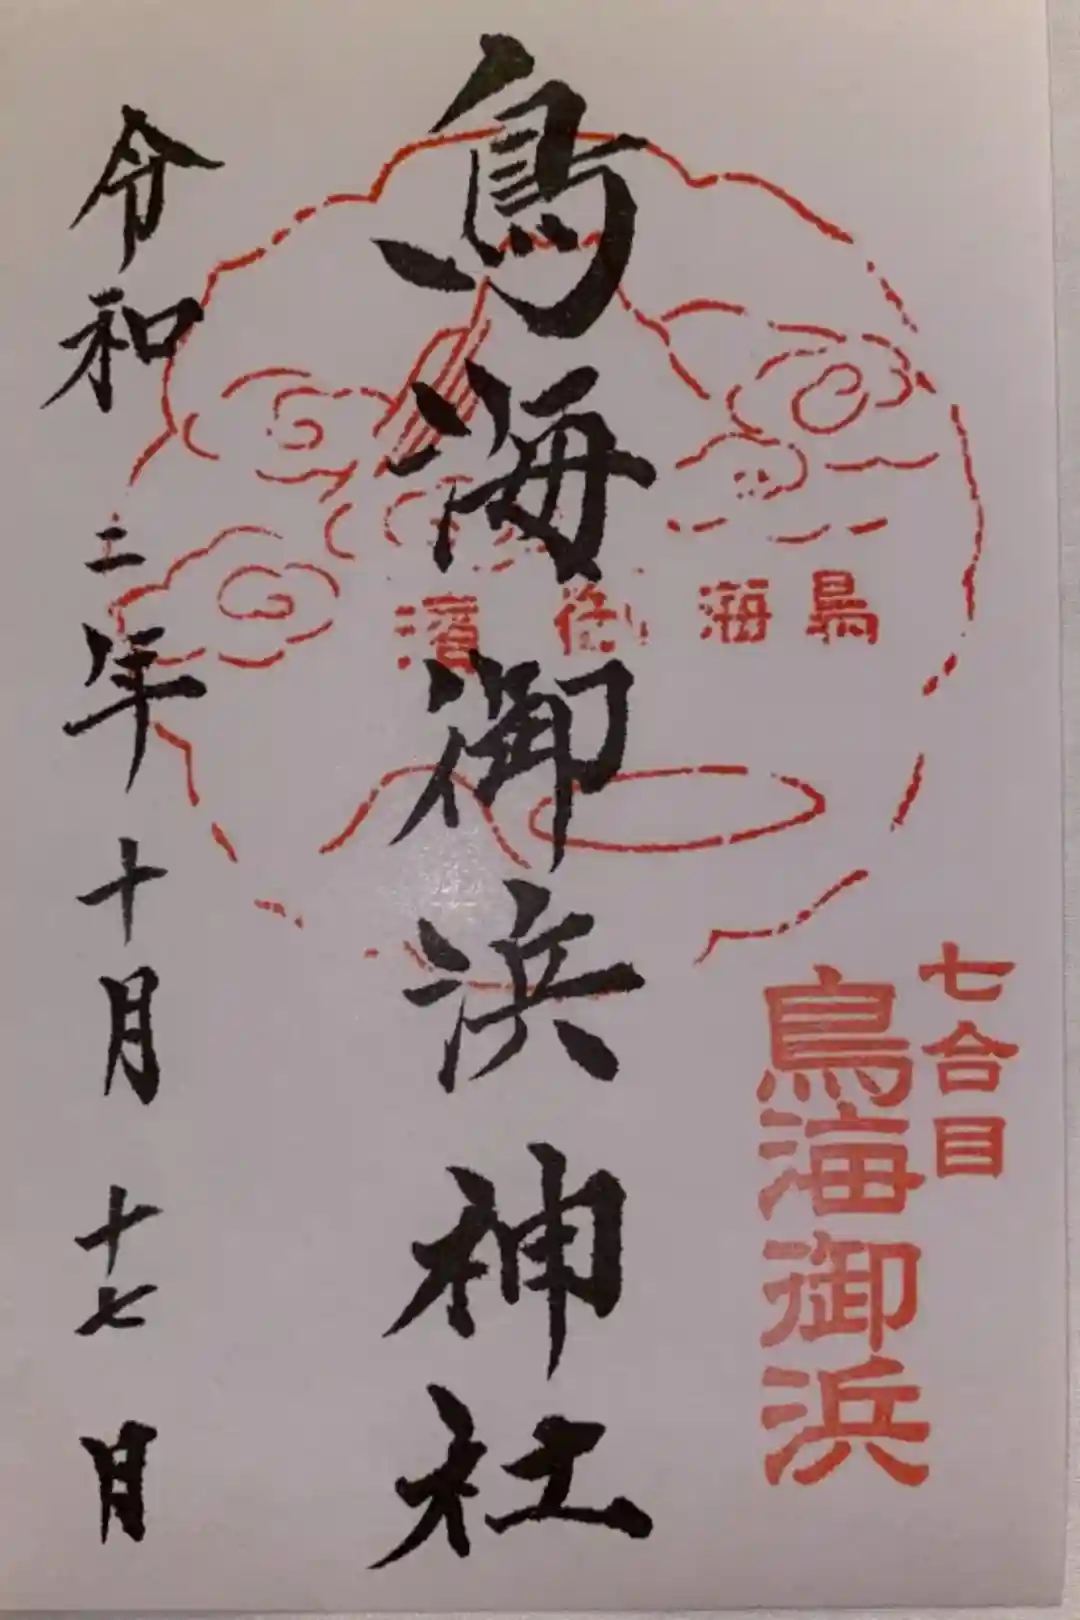 七合目
鳥海御浜
鳥海御浜神社
鳥海御濱
令和二年十月十七日